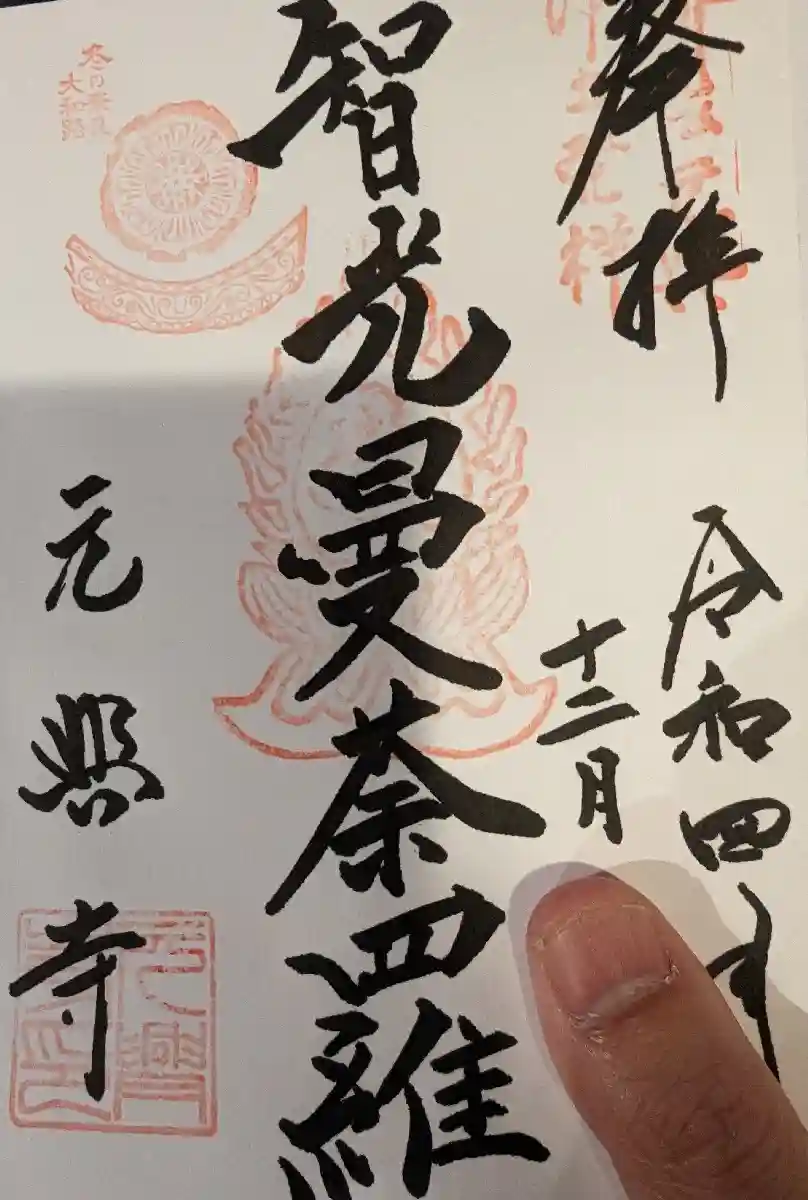 奉拝
令和四年
十二月
智光曼荼羅
元興寺
元興
寺印